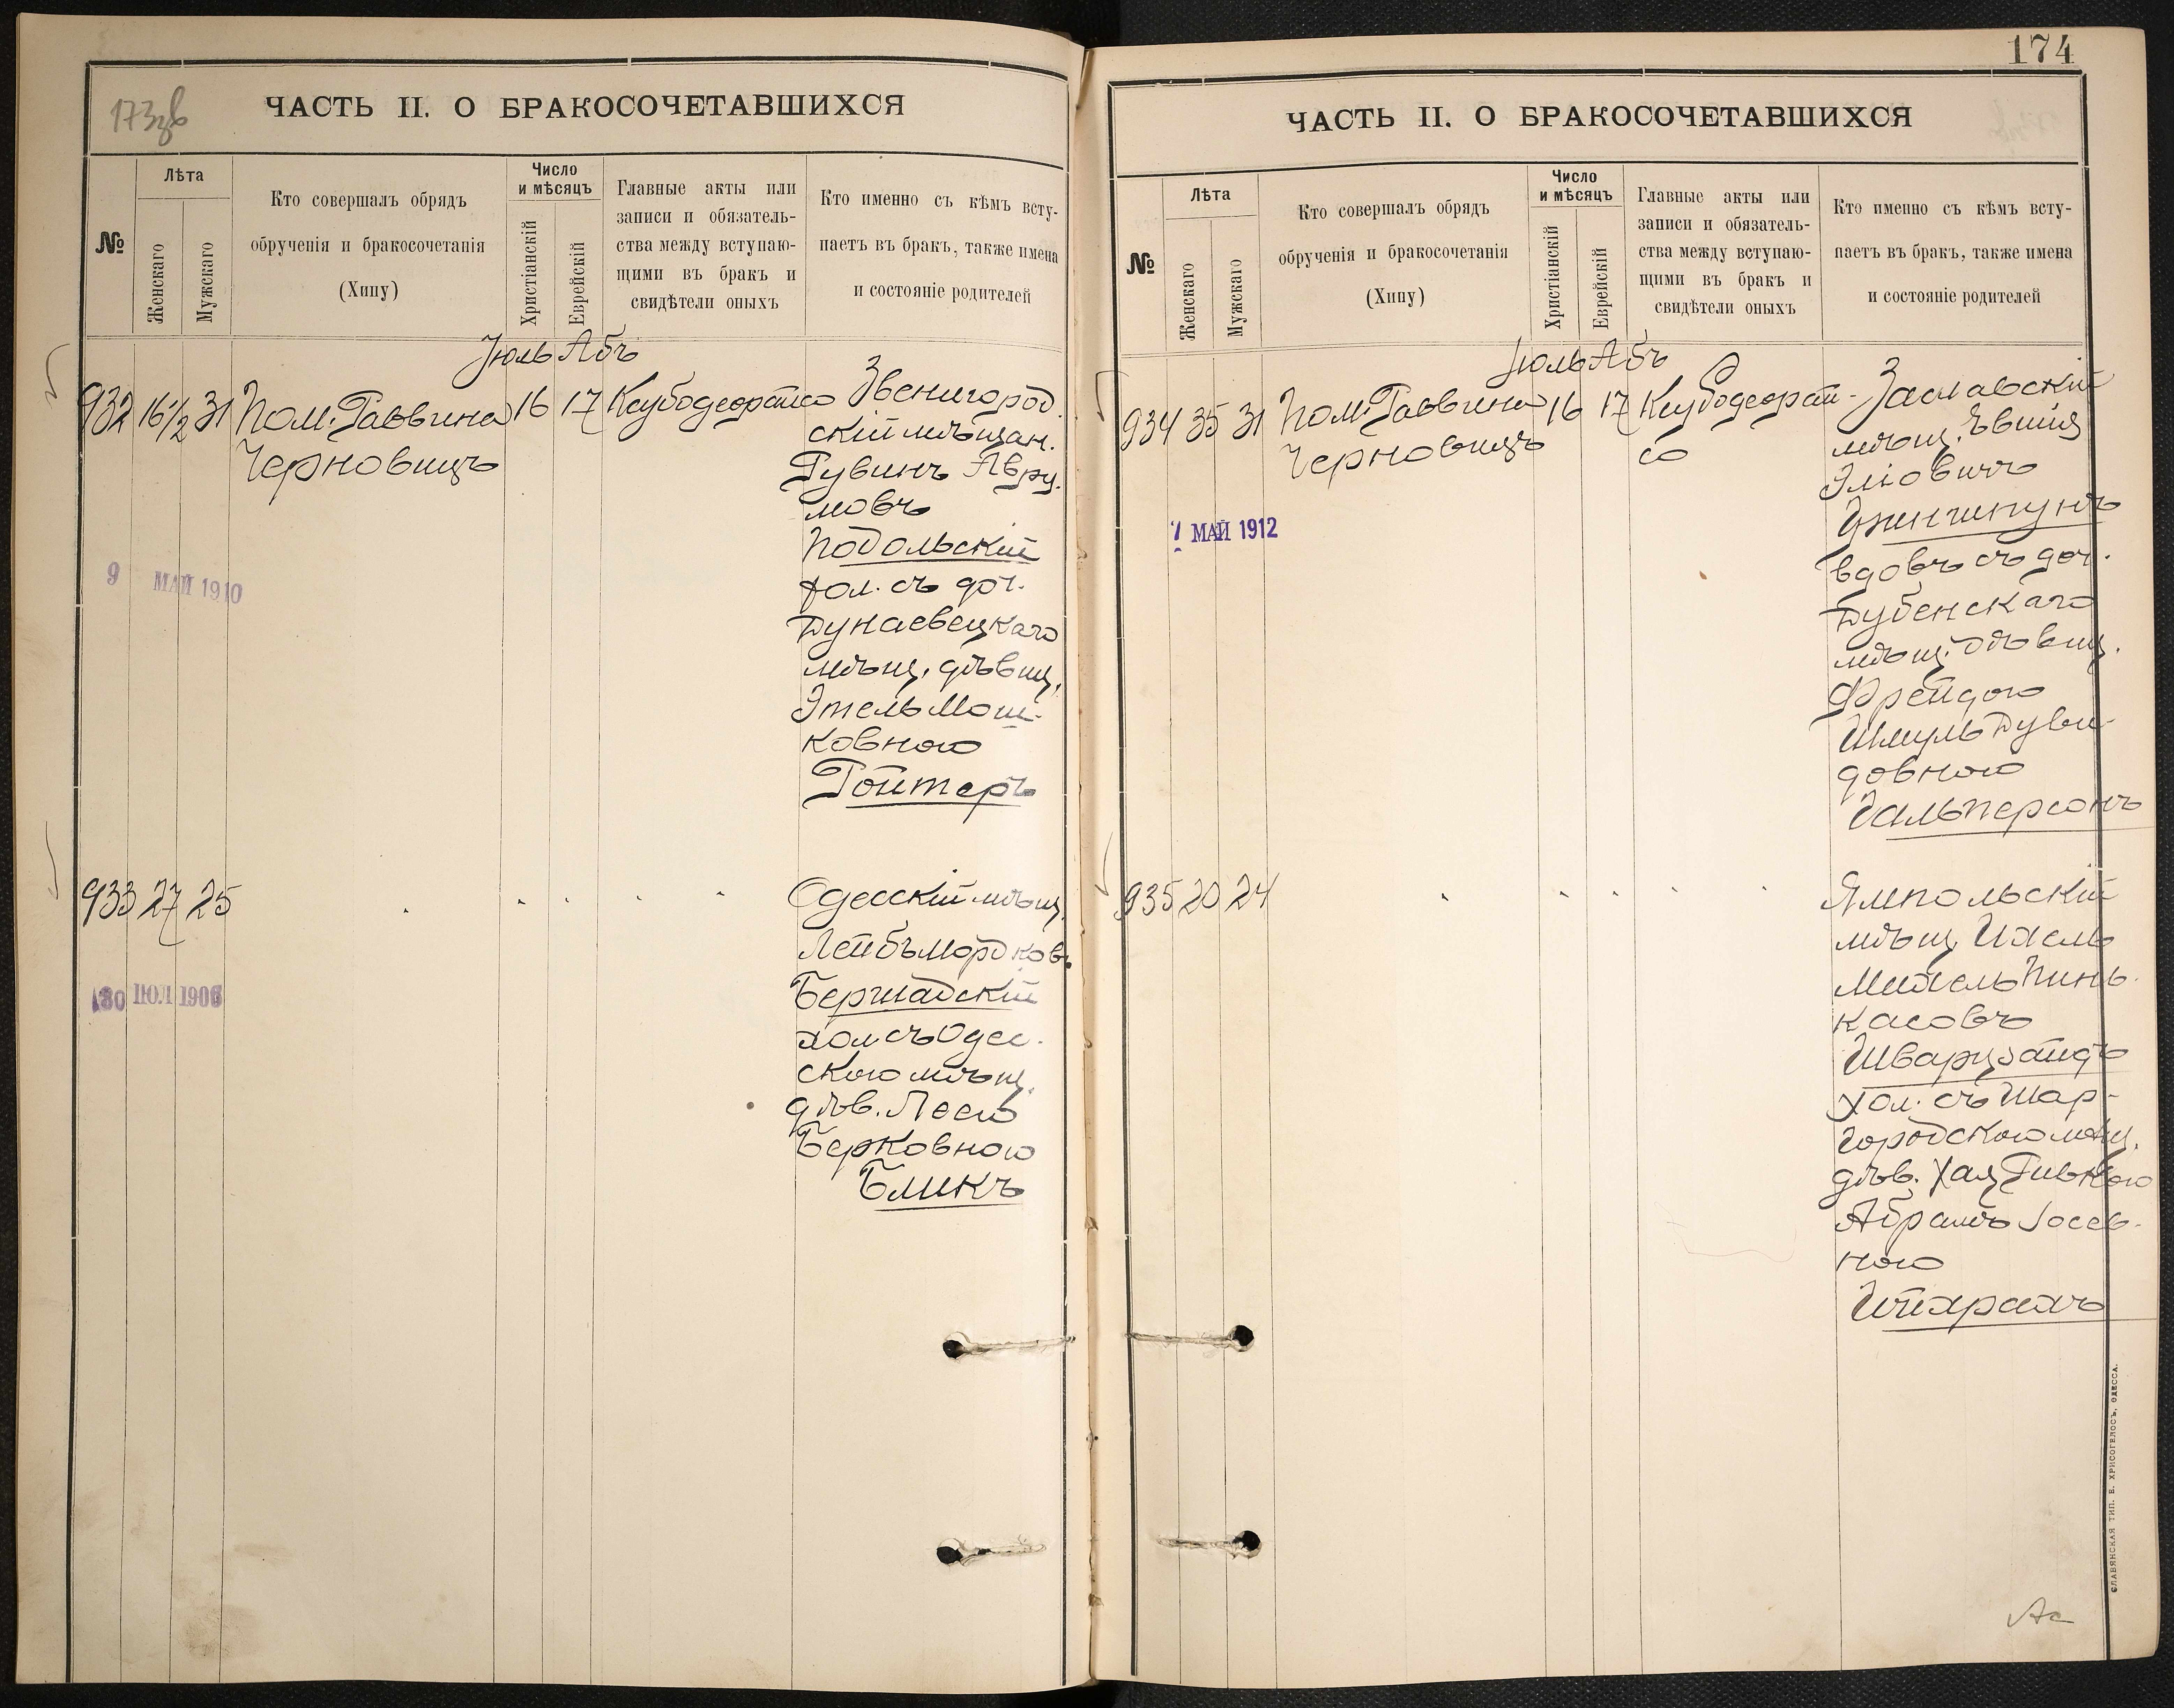 173 об
ЧАСТЬ II. О БРАКОСОЧЕТАВШИХСЯ
№
Лѣта
Женскаго
Мужскаго
Кто совершалъ обрядъ
обрученія и бракосочетанія
(Хипу)
Число
и мѣсяцъ
Христіанскій
Еврейскій
Главные акты или
записи и обязатель-
ства между вступаю-
щими въ бракъ и
свидѣтели оныхъ
Кто именно съ кѣмъ всту-
паетъ въ бракъ, также имена
и состояніе родителей
Іюль Абъ
932 16½ 31 Пом. Раввина 16 17 Ксубодеорайсо Звенигород.
Черновицъ
скій мѣщан.
Рувинъ Авру-
мовъ
Подольскій
хол. съ доч.
Дунаевецкаго
мѣщ. дѣвиц.
Этель Мош-
ковною
Ройтеръ
9 МАЙ 1910
933 27 25 Одесскій мѣщ.
Лейбъ Мордков.
Бершадскій
хол. съ Одес-
скою мѣщ.
дѣв. Леею
Берковною
Бликъ
30 ІЮЛ 1906
174
ЧАСТЬ II. О БРАКОСОЧЕТАВШИХСЯ
№
Лѣта
Женскаго
Мужскаго
Кто совершалъ обрядъ
обрученія и бракосочетанія
(Хипу)
Число
и мѣсяцъ
Христіанскій
Еврейскій
Главные акты или
записи и обязатель-
ства между вступаю-
щими въ бракъ и
свидѣтели оныхъ
Кто именно съ кѣмъ всту-
паетъ въ бракъ, также имена
и состояніе родителей
Іюль Абъ
934 35 31 Пом. Раввина 16 17 Ксубодеорай- Заславскій
Черновицъ со
мѣщ.
Эліовичъ
вдовъ съ доч.
Дубенскаго
мѣщ. дѣвиц.
Фрейдою
Шмуль Дуви-
довною
Гальперсонъ
7 МАЙ 1912
935 20 24 Ямпольскій
мѣщ. Ихель
Михель Пинь-
касовъ
Шварцзайдъ
хол. съ Шар-
городскою мѣщ.
дѣв. Хая Ривкою
Абрамъ Іосев-
ною
Штрахъ
СЛАВЯНСКАЯ ТИП. Е. ХРИСОГЕЛОСЪ, ОДЕССА.